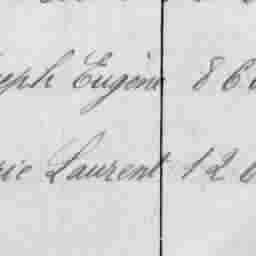 eph Eugène 8 6
ie Laurent 1 2 6